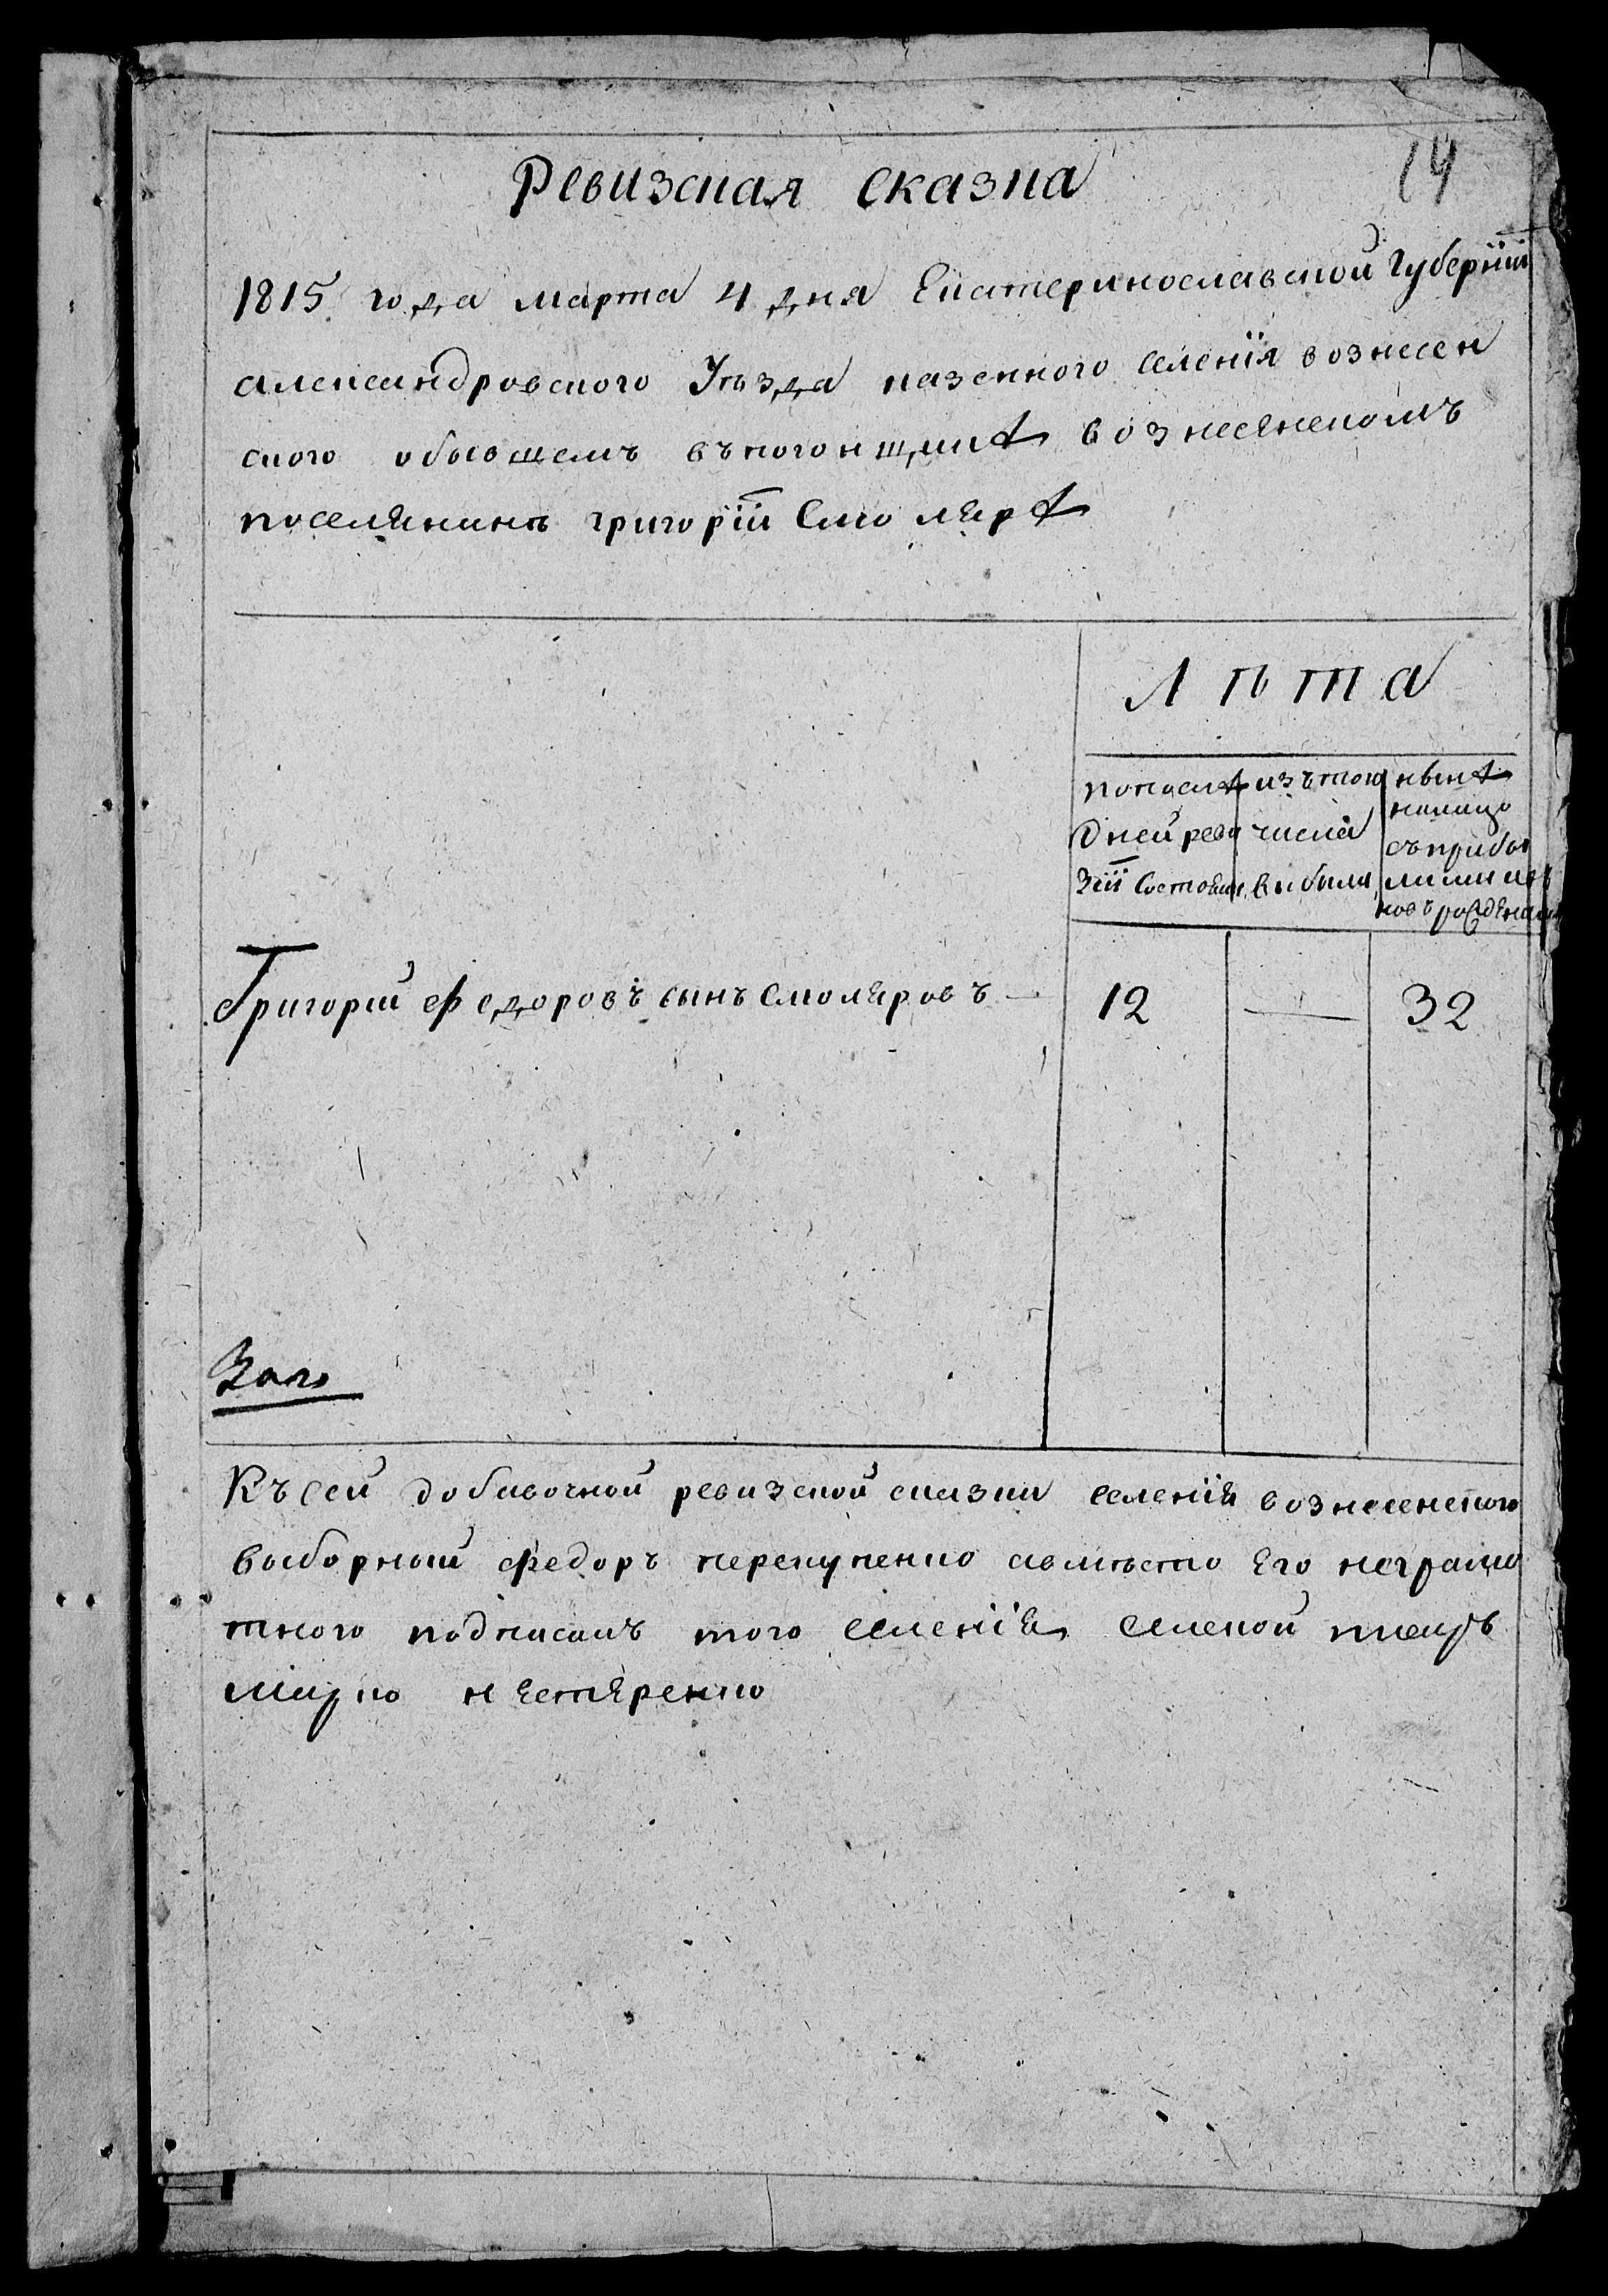 14
Ревизская сказка
1815 года марта 4 дня Екатеринославской Губернїи
александровского Уѣзда казенного селенїя вознесен
ского обывшемъ въ погонщикѣ вознесенскомъ
поселянинѣ григорїи Смолярѣ
Лѣта
по послѣ
дней реви
зїи Состояли
изъ того
числа
выбыли
нынѣ
налицо
съ прибы
лыми и въ
новь рожденными
Григорїй Федоровъ сынъ Смоляровъ — 12 — 32
Къ сей добавочной ревизской сказки селенїя вознесенского
выборный Федоръ перекупенко авместо Его неграмо
тного подписалъ того селенїя селской писарь
мирко нестеренко